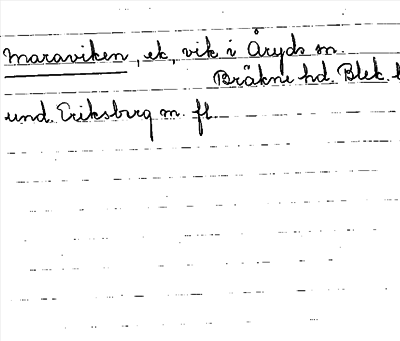 Maraviken, ek, vik i Åryds sn.
Bräkne hd. Blek. l
und. Eriksberg m. fl.